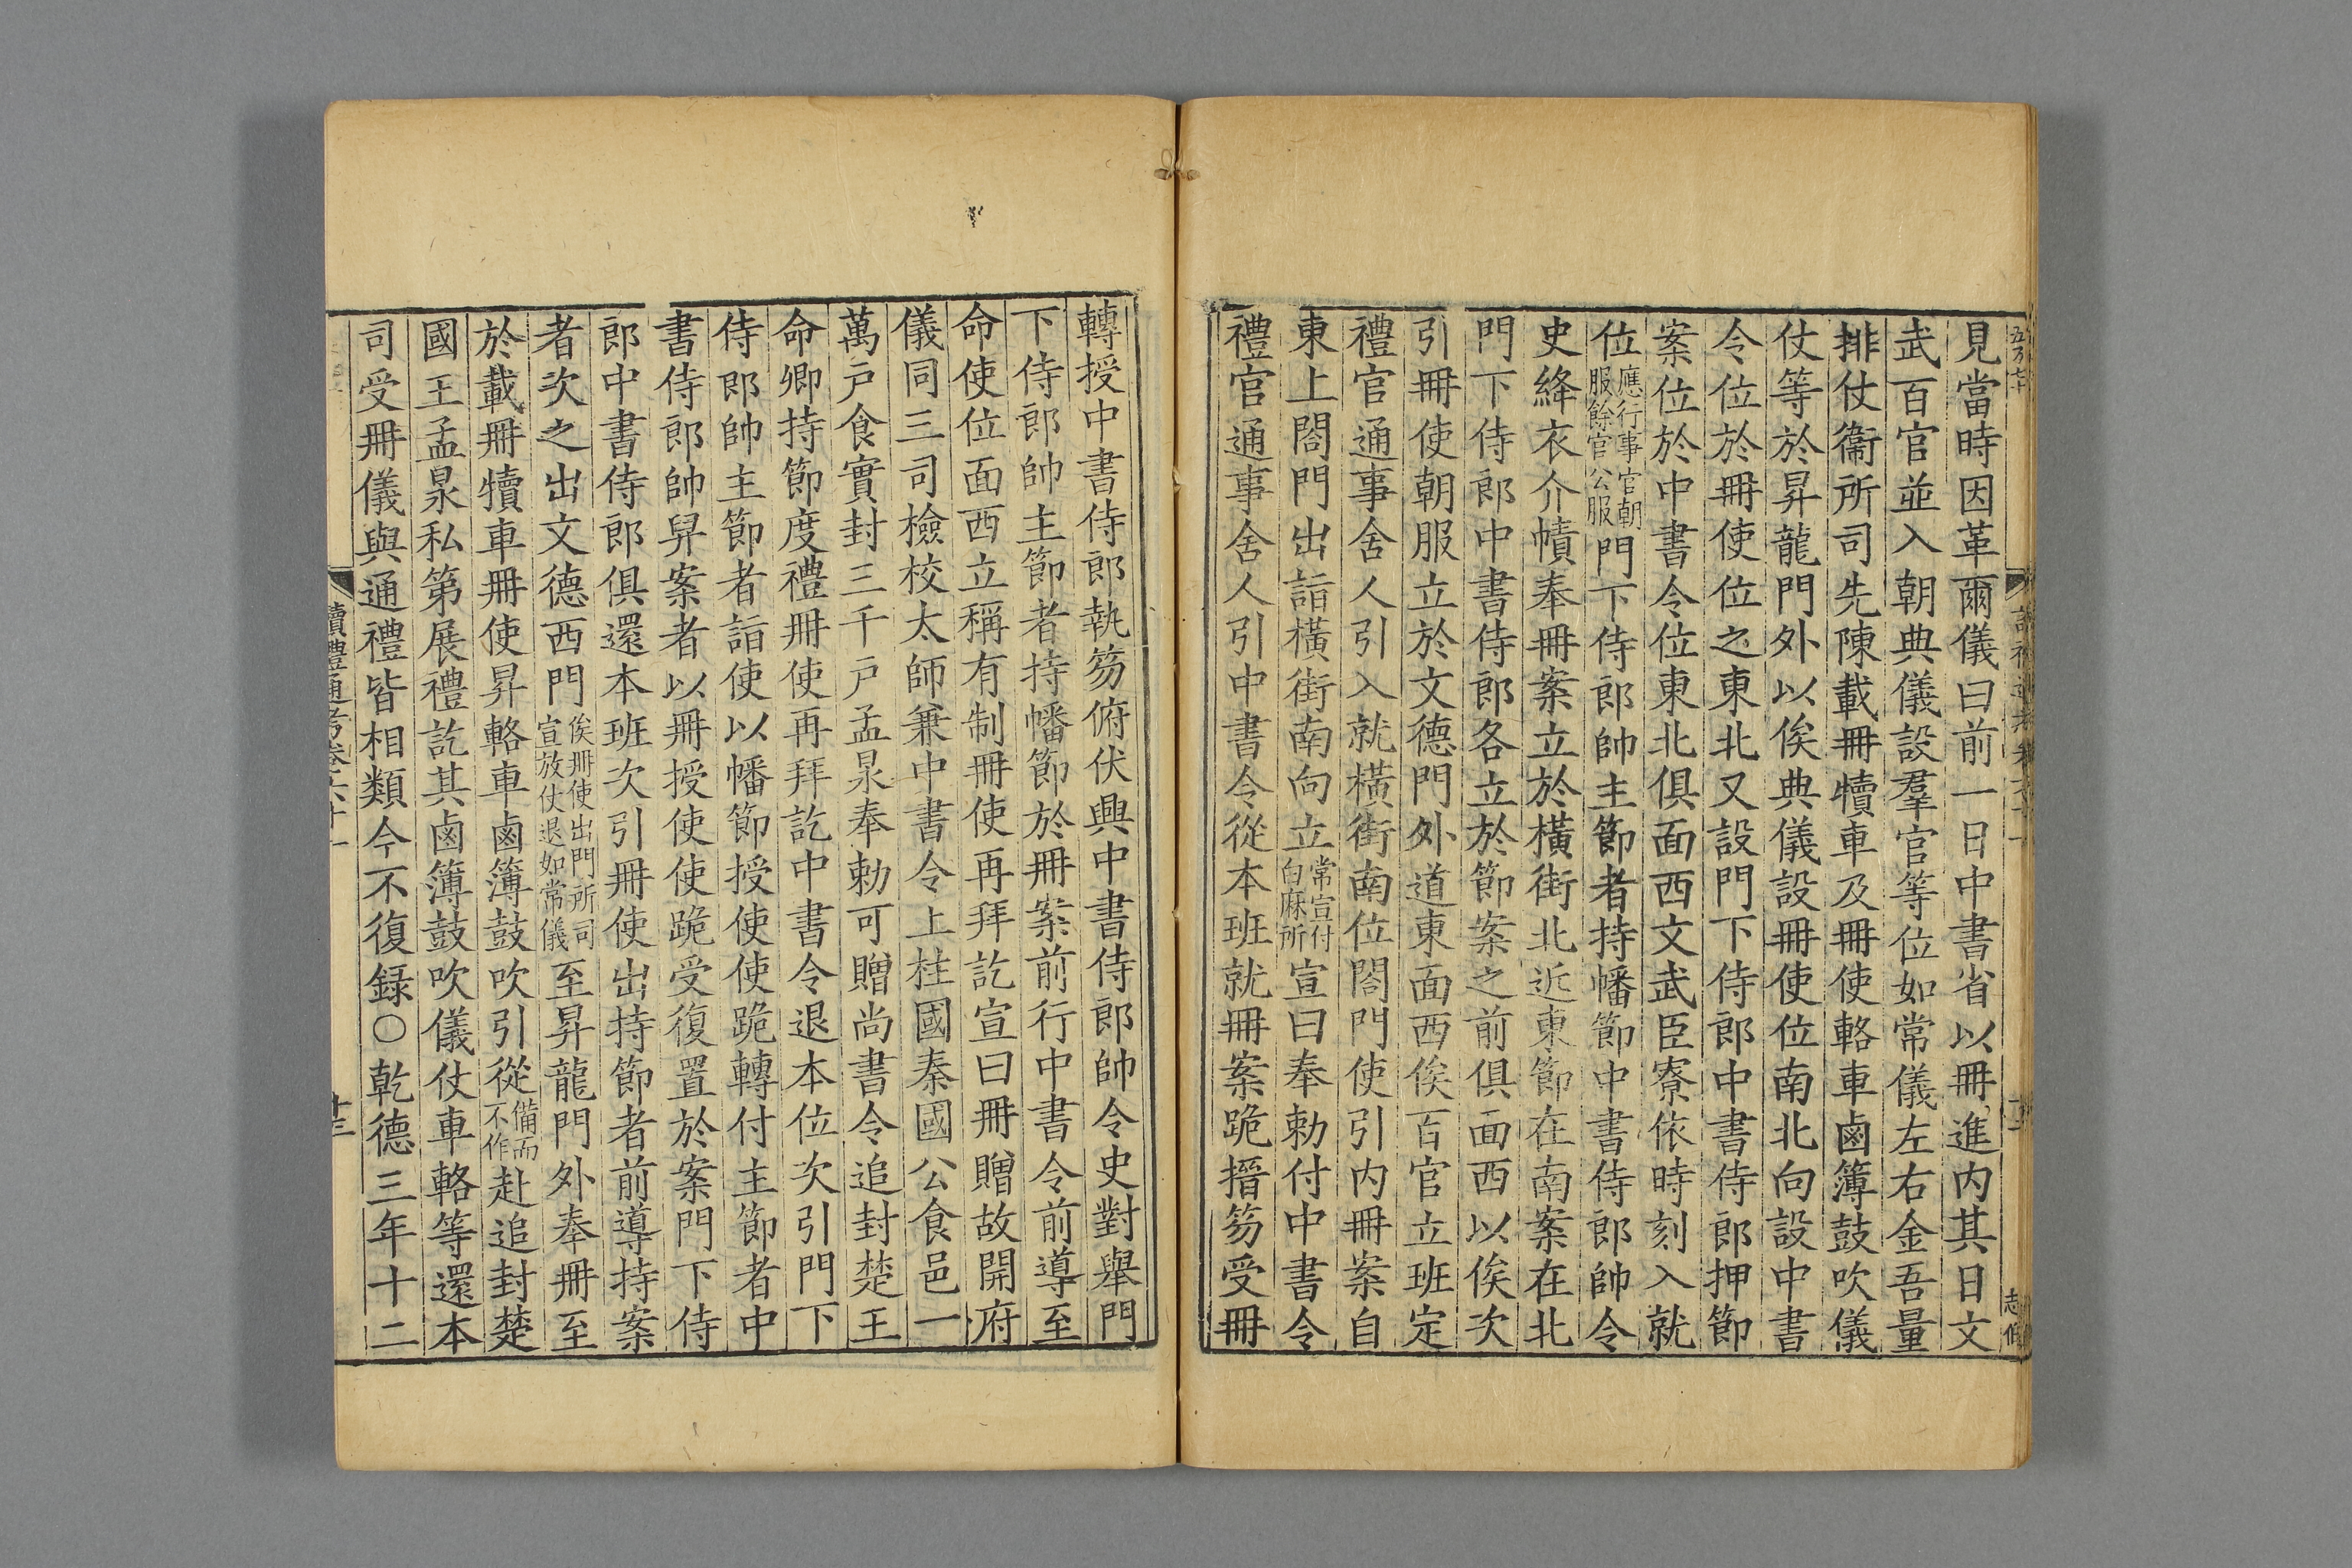 見當時因革爾儀曰前一日中書省以冊進内其日文
武百官並入朝典儀設羣官等位如常儀左右金吾量
排仗衞所司先陳載冊犢車及冊使輅車鹵簿鼓吹儀
仗等於昇龍門外以俟典儀設冊使位南北向設中書
令位於冊使位之東北又設門下侍郎中書侍郎押節
案位於中書令位東北俱面西文武臣寮依時刻入就
位應行事官朝服餘官公服門下侍郎帥主節者持幡節中書侍郎帥令
史絳衣介幘奉冊案立於橫街北近東節在南案在北
門下侍郎中書侍郎各立於節案之前俱面西以俟次
引冊使朝服立於文德門外道東面西俟百官立班定
禮官通事舍人引入就橫街南位閤門使引内冊案自
東上閤門出詣橫街南向立常宣付白麻所宣曰奉勅付中書令
禮官通事舍人引中書令從本班就冊案跪搢笏受冊
轉授中書侍郎執笏俯伏興中書侍郎帥令史對舉門
下侍郎帥主節者持幡節於冊案前行中書令前導至
命使位面西立稱有制冊使再拜訖宣曰冊贈故開府
儀同三司檢校太師兼中書令上柱國秦國公食邑一
萬戸食實封三千戸孟昶奉勅可贈尚書令追封楚王
命卿持節度禮冊使再拜訖中書令退本位次引門下
侍郎帥主節者詣使以幡節授使使跪轉付主節者中
書侍郎帥舁案者以冊授使使跪受復置於案門下侍
郎中書侍郎俱還本班次引冊使出持節者前導持案
者次之出文德西門俟冊使出門所司宣放仗退如常儀至昇龍門外奉冊至
於載冊犢車冊使昇輅車鹵簿鼓吹引從備而不作赴追封楚
國王孟昶私第展禮訖其鹵簿鼓吹儀仗車輅等還本
司受冊儀與通禮皆相類今不復録○乾德三年十二
讀禮通考卷六十一
十三